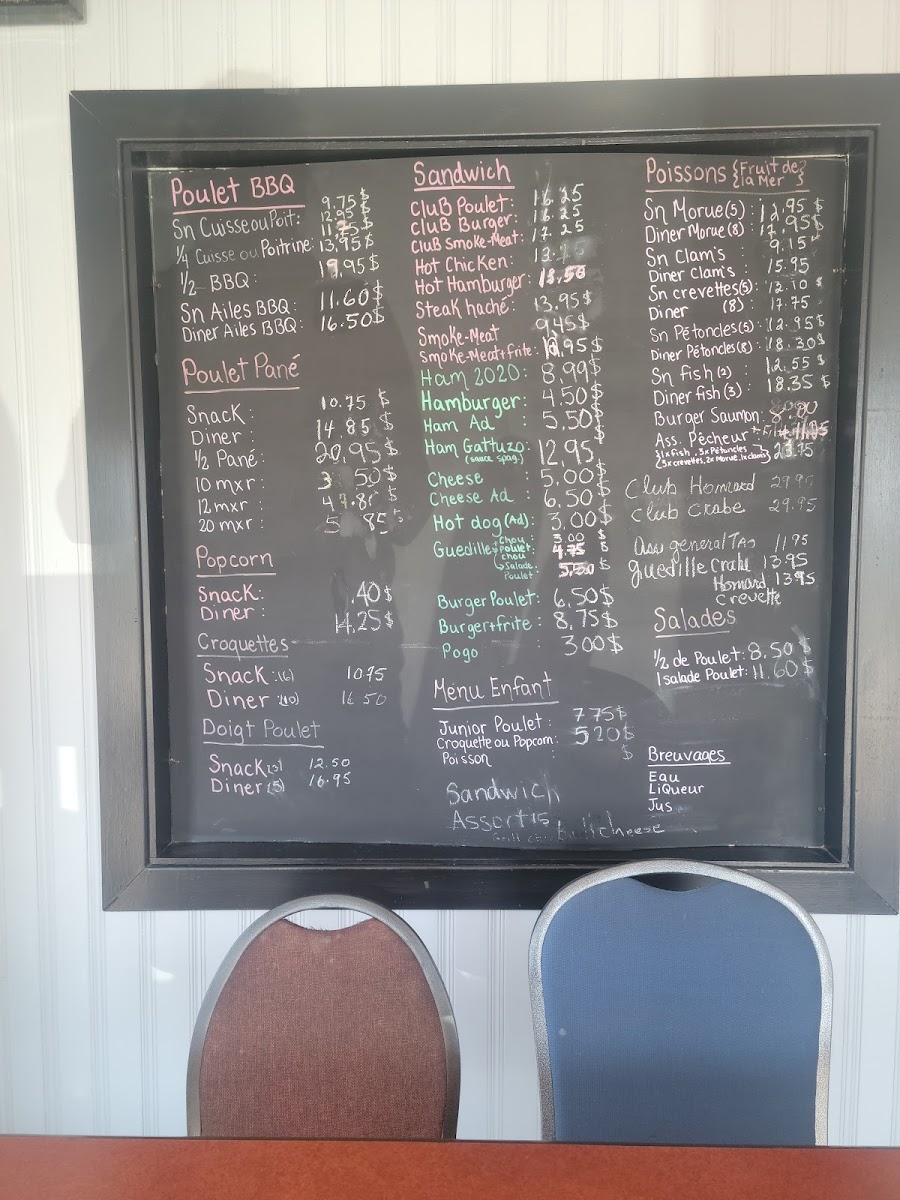 Poulet BBQ
Sn Cuisse ou Poit: 9.75$
12.95$
1/4 Cuisse ou Poitrine: 13,95$
1/2 BBQ: 19.95$
Sn Ailes BBQ: 11.60$
Diner Ailes BBQ: 16.50$
Poulet Pané
Snack: 10.75 $
Diner: 14.85 $
1/2 Pané: 20,95$
10 mxr: 50$
12 mxr: $
20 mxr: 85$
Popcorn
Snack: .40$
Diner: 14.25$
Croquettes
Snack: (6) 1075
Diner (10) 16 50
Doigt Poulet
Snack (3) 12.50
Diner (5) 16.95
Sandwich
Club Poulet: 16.25
Club Burger: 16.25
Club Smoke-Meat: 17.25
Hot Chicken:
Hot Hamburger:
Steak haché: 13.95$
Smoke-Meat 9.45$
Smoke-Meat+frite: .95$
Ham 2020: 8.99$
Hamburger: 4.50$
Ham Ad: 5.50$
Ham Gattuzo: 12,95
(sauce spag.)
Cheese 5.00$
Cheese Ad: 6,50$
Hot dog (Ad): 3.00$
Chou: 3.00 $
Guedille Poulet: 4.75 $
chou
Salade $
Poulet
Burger Poulet: 6,50$
Burger+frite: 8,75$
Pogo 300$
Menu Enfant
Junior Poulet: 775$
Croquette ou Popcorn: 520$
Poisson $
Sandwich
Assortis
Poissons {Fruit de la Mer}
Sn Morue (5): 12,95 $
Diner Morue (8): 17,95$
Sn Clam's 9.15
Diner Clam's: 15.95
Sn crevettes (5): 12.10 $
Diner (8): 17.75
Sn Pétoncles (5): 12.95$
Diner Pétoncles (8): 18.30$
Sn fish (2) 12.55 $
Diner fish (3) 18.35 $
Burger Saumon:
Ass. Pêcheur
{1x fish, 3x Pétoncles
3x crevettes, 2x Morue, 1x clams} 23.75
Club Homard 29.95
Club Crabe 29.95
11.95
guedille Crabe 13.95
Homard 13.95
Crevette
Salades
1/2 de Poulet: 8.50 $
1 salade Poulet: 11.60$
Breuvages
Eau
LiQueur
Jus